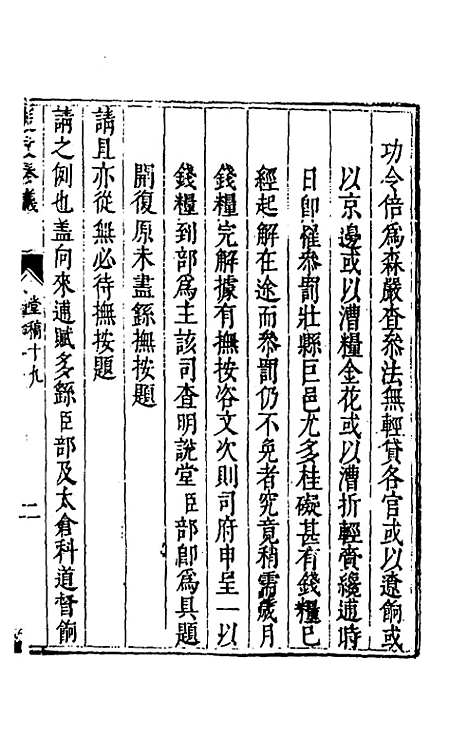 功令倍為森嚴查叅法無輕貸各官或以遼餉或
以京邊或以漕糧金花或以漕折輕賫纔逋時
日卽罹叅罰壯縣巨邑尤多桂礙甚有錢糧已
經起解在途而叅罰仍不免者究竟稍需歲月
錢糧完解據有撫按咨文次則司府申呈一以
錢糧到部為主該司查明說堂臣部卽為具題
開復原未盡繇撫按題
請且亦從無必待撫按題
請之例也盖向來逋賦多繇臣部及太倉科道督餉
奏議
堂稿十九
二